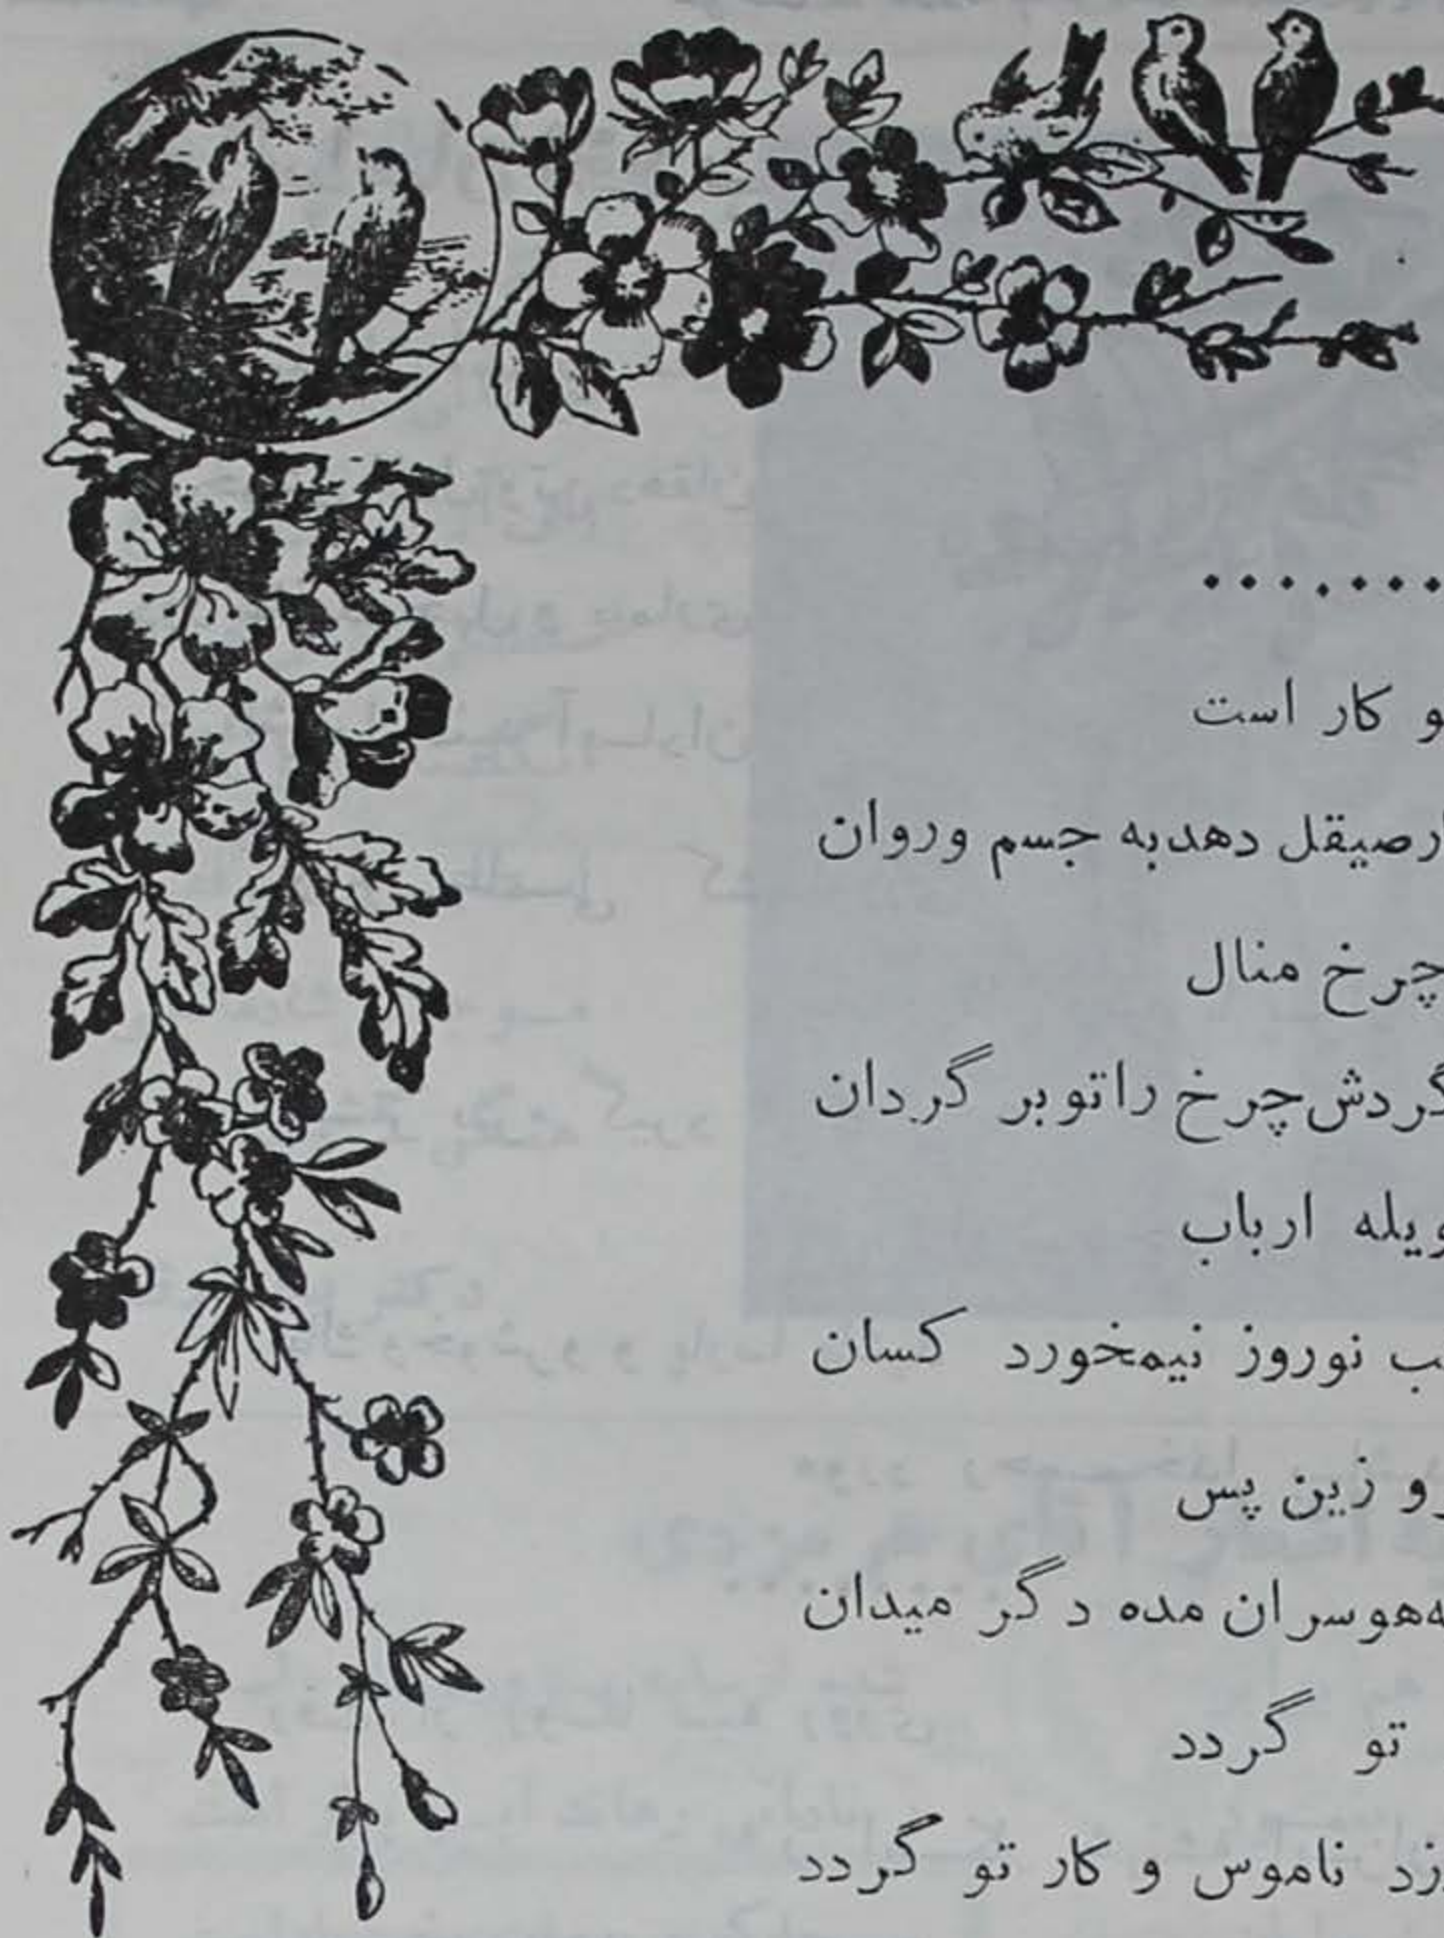 ........
و کار است
صیقل دهدبه جسم وروان
چرخ منال
گردش چرخ راتوبر گردان
ارباب
نوروز نیمخورد کسان
زین پس
هوسران مده دگر میدان
تو گردد
ناموس و کار تو گردد